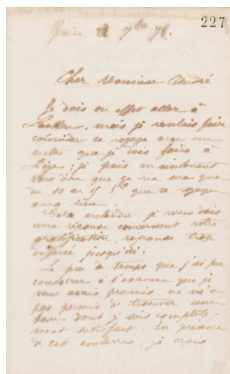 227
Cher Monsieur André
Je dois en effet aller à
Londres, mais je voulais faire
coincider ce voyage avec un
autre que je dois faire à
Liège; je puis maintenant
vous dire que ce ne sera que
du 10 au 15 que ce voyage
aura lieu.
Cela m'aidera je vous dois
une réponse concernant votre
gratification, réponse trop
différée jusqu'ici.
Le peu de temps que j'ai pu
consacrer à l'examen que je
vous avais promis ne m'a
pas permis de trouver une
base dont je sois complète-
ment satisfait. En présence
de cet insuccès, je